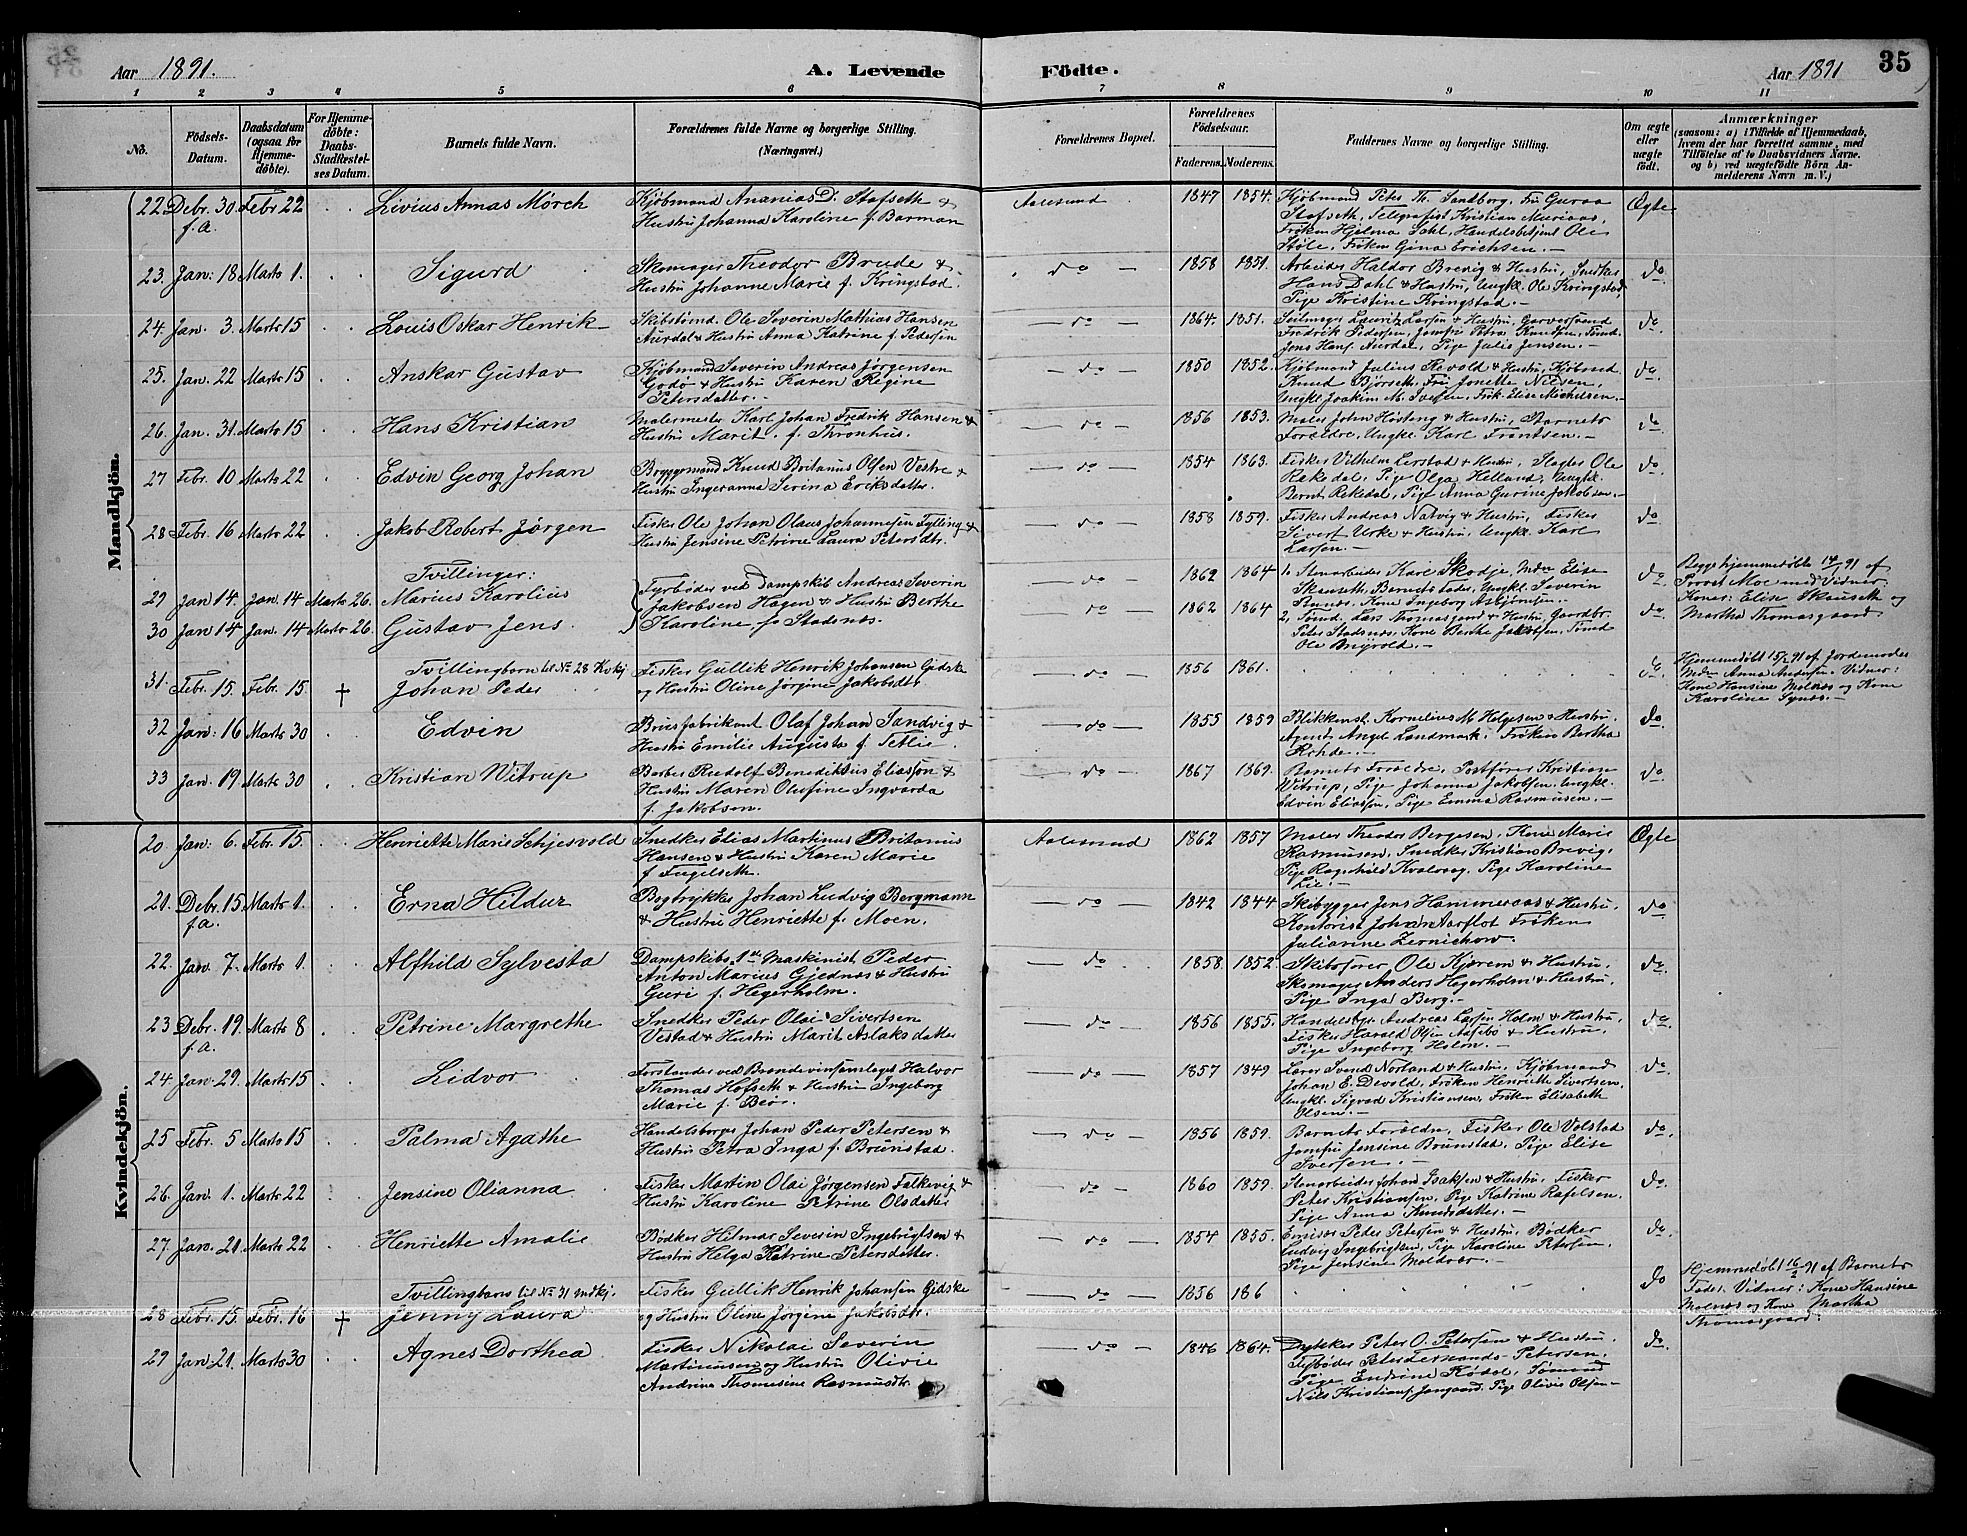 Aar 1891. A. Levende Födte. Aar 1891 35
1 2 3 4 5 6 7 8 9 10 11
No. Födsels-Datum. Daabsdatum (ogsaa for Hjemmedøbte). For Hjemmedøbte: Daabs-Stadfæstelses Datum. Barnets fulde Navn. Forældrenes fulde Navne og borgerlige Stilling. (Næringsvei.) Forældrenes Bopæl. Forældrenes Födselsaar. Faderens. Moderens. Faddernes Navne og borgerlige Stilling. Om ægte eller uægte födt. Anmærkninger (saasom: a) i Tilfælde af Hjemmedaab, hvem der har forrettet samme, med Tilföielse af to Daabsvidners Navne. og b) ved uægtefödte Börn Anmelderens Navn m. V.)
Mandkjön.
22. Debr. 30. Febr 22 Livius Annas Mörch Kjöbmand Ananias D. Stafseth & Aalesund 1847 1854. Kjöbmand Peter Th. Sandborg, Fru Guroa Ægte
f.a. Hustru Johanna Karoline f. Barman Stafseth, Telegrafist Kristian
Fröken Hjelma Dahl, Handelsbetjent Ole
Støle, Fröken Gina Erichsen. —
23. Jan: 18 Marts 1. Sigurd Skomager Theodor Brude & — do — 1858 1851. Arbeider Haldor Brevig & Hustru, Snedker do
Hustru Johanne Marie f. Kringstad. Hans Dahl & Hustru, Ungkl. Ole Kringstad,
Pige Kristine Kringstad. —
24. Jan. 3. Marts 15 Louis Oskar Henrik Skibstömd Ole Severin Mathias Hansen — do — 1864. 1851. Seilmager Lauritz Larsen & Hustru, Garversvend do
Aurdal & Hustru Anna Katrine f. Pedersen Fredrik Pedersen, Jomfru Petra Knudsen, Tömd.
Jens Hans. Aurdal, Pige Julie Jensen. —
25. Jan. 22 Marts 15 Anskar Gustav Kjöbmand Severin Andreas Jörgensen — do — 1850 1852. Kjöbmand Julius Revold & Hustru, Kjöbmd do
Godö & Hustru Karen Regine Knud Börseth, Fru Jonette Nilsen,
Petersdatter. Ungkl Joakim M. Iversen, Frk. Elise Michelsen. —
26. Jan. 31. Marts 15 Hans Kristian Malermester Karl Johan Fredrik Hansen & — do — 1856 1853. Maler John Hösteng & Hustru, Barnets do
Hustru Marit. f. Thronhus. Forældre, Ungkl. Karl Frantsen. —
27 Febr. 10 Marts 22 Edvin Georg Johan Bryggemand Knud Britanus Olsen Vestre & — do — 1854 1863. Fisker Vilhelm Lerstad & Hustru, Slagter Ole do
Hustru Ingeranna Serina Eriksdatter. Rekedal, Pige Olga Helland, Ungkl.
Bernt Rekedal, Pige Anna Gurine Jakobsen. —
28 Febr. 16 Marts 22 Jakob Robert Jörgen Fisker Ole Johan Olaus Johannesen Fylling & — do — 1858 1859. Fisker Andreas Natvig & Hustru, Fisker do
Hustru Jensine Petrine Laura Petersdtr. Sivert Urke & Hustru, Ungkl. Karl
Larsen. —
Tvillinger: Fyrböder ved Dampskib Andreas Severin — do 1862 1864 1. Stenarbeider Karl Skodje, Mdm Elise do Begge hjemmedöbte 14/1 91 af
29 Jan 14. Jan. 14 Marts 26. Marius Karolius Jakobsen Hagen & Hustru Berthe Skauseth, Barnets Fader, Ungkl. Severin Provst Moe med Vidner
30 Jan 14 Jan. 14 Marts 26. Gustav Jens. Karoline f. Stadsnæs. — do — 1862 1864 Kone Ingeborg Asbjörnsen. do Koner: Elise Skauseth og
2, Tömd. Lars Thomasgaard & Hustru, Gaardbr. Martha Thomasgaard.
Peter Stadsnæs, Kone Berthe Jakobsen, Tömd
Ole Brigvold. —
31. Tvillingbarn til No 28 Kvkj. Fisker Gullik Henrik Johansen Gidske — do 1856 1861. do Hjemmedöbt 15/2 91 af Jordemoder
Febr. 15. Febr. 15. † Johan Peder og Hustru Oline Jörgine Jakobsdtr Mdm Anna Andersen. Vidner:
Kone Hansine Molnæs og Kone
Karoline Synes. —
32 Jan: 16 Marts 30 Edvin Brusfabrikant Olaf Johan Sandvig & — do — 1855 1859 Blikkensl. Kornelius M. Helgesen & Hustru. do
Hustru Emilie Augusta f. Tetlie. Agent Angel Landmark. Fröken Bertha
Rohde. —
33 Jan. 19. Marts 30 Kristian Witrup Barber Rudolf Benediktus Eliassen & — do — 1867 1869. Barnets Forældre, Postförer Kristian do
Hustru Maren Olufine Ingvarda Witrup, Pige Johanna Jakobsen, Ungkl.
f. Jakobsen. Edvin Eliassen, Pige Emma Rasmusen. —
Kvindekjön.
20. Jan: 6. Febr. 15. Henriette Marie Schjesvold Snedker Elias Martinus Britanus Aalesund 1862 1857 Maler Theodor Bergesen, Kone Marie Ægte
Hansen & Hustru Karen Marie Rasmusen, Snedker Kristian Brevig,
f. Engelseth. Pige Ragnhild Kvalvaag, Pige Karoline
Lie. —
21. Debr. 15. Marts 1. Erna Hildur Bogtrykker Johan Ludvig Bergmann — do — 1842 1844 Skibbygger Jens Hammeraas & Hustru, do
f.a. & Hustru Henriette f. Moen. Kontorist Johan Aarflot Fröken
Julianne Zernichow.
22. Jan. 7. Marts 1 Alfhild Sylvesta Dampskibs 1ste Maskinist Peder — do 1858. 1852. Skibsförer Ole Kjærem & Hustru. do
Anton Marius Gjednæs & Hustru Skomager Anders Hegerholm & Hustru.
Guri f. Hegerholm. Pige Inga Berg. —
23 Debr. 19. Marts 8 Petrine Margrethe Snedker Peder Olai Sivertsen — do — 1856 1855. Handelsbgr Andreas Larsen Holm & Hustru, do
f.a. Vestad & Hustru Marit Aslaksdatter Fisker Harald Olsen Aasebö & Hustru.
Pige Ingeborg Holm. —
24. Jan. 29. Marts 15 Lidvor Forstander ved Brændevinssamlaget Halvor — do — 1857 1849 Lærer Svend Norland & Hustru, Kjöbmand do
Thomas Hofseth & Hustru Ingeborg Johan E. Devold, Fröken Henriette Sivertsen,
Marie f. Beör. Ungkl. Sigvard Kristiansen, Fröken Elisabeth
Olsen. —
25 Febr. 5 Marts 15 Palma Agathe Handelsborger Johan Peder Petersen & — do — 1856 1859. Barnets Forældre, Fisker Ole Volstad do
Hustru Petra Inga f. Brunstad. Jomfru Jensine Brunstad, Pige Elise
Iversen. —
26. Jan. 1. Marts 22 Jensine Olianna Fisker Martin Olai Jörgensen Falkevig & — do — 1860 1859. Stenarbeider Johan Isaksen & Hustru, Fisker do
Hustru Karoline Petrine Olsdatter Peter Kristiansen, Pige Katrine Rafelsen.
Pige Anna Knudsdatter. —
27. Jan. 21. Marts 22 Henriette Amalie Bödker Hilmar Severin Ingebrigtsen & — do — 1854 1855. Peter Petersen & Hustru, Bödker do
Hustru Helga Katrine Petersdatter. Ludvig Ingebrigtsen, Pige Karoline Petersen.
Pige Jensine Moldver. —
Tvillingbarn til No 31 Mdkj. Fisker Gullik Henrik Johansen Gidske — do — 1856 186 do Hjemmedöbt 16/2 91 af Barnets
28 Febr. 15. Febr. 16 † Jenny Laura og Hustru Oline Jörgine Jakobsdtr. Fader. Vidner: Kone Hansine
Molnæs og Kone Martha
Thomasgaard.
29 Jan. 21. Marts 30 Agnes Dorthea Fisker Nikolai Severin — do — 1846 1864. Dykker Peter O. Petersen & Hustru. do
Martinussen og Hustru Olivie Fyrböder Peter Fernando Petersen.
Andrine Thomasine Rasmusdtr. Pige Entrine Rödal, Tömand
Nils Kristians. Jangaard, Pige Olivie Olsen —